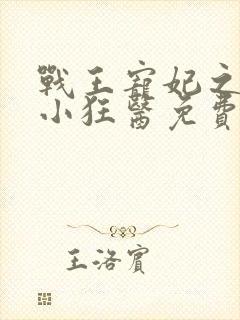 戰王寵妃之
小狂醫免費
王洛賓